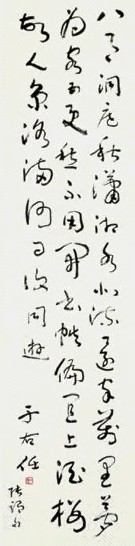 八月洞庭秋瀟湘水北流還家萬里夢
為客五更愁不用開書帙偏宜上酒樓
故人京洛滿何日復同遊
于右任
張謂句